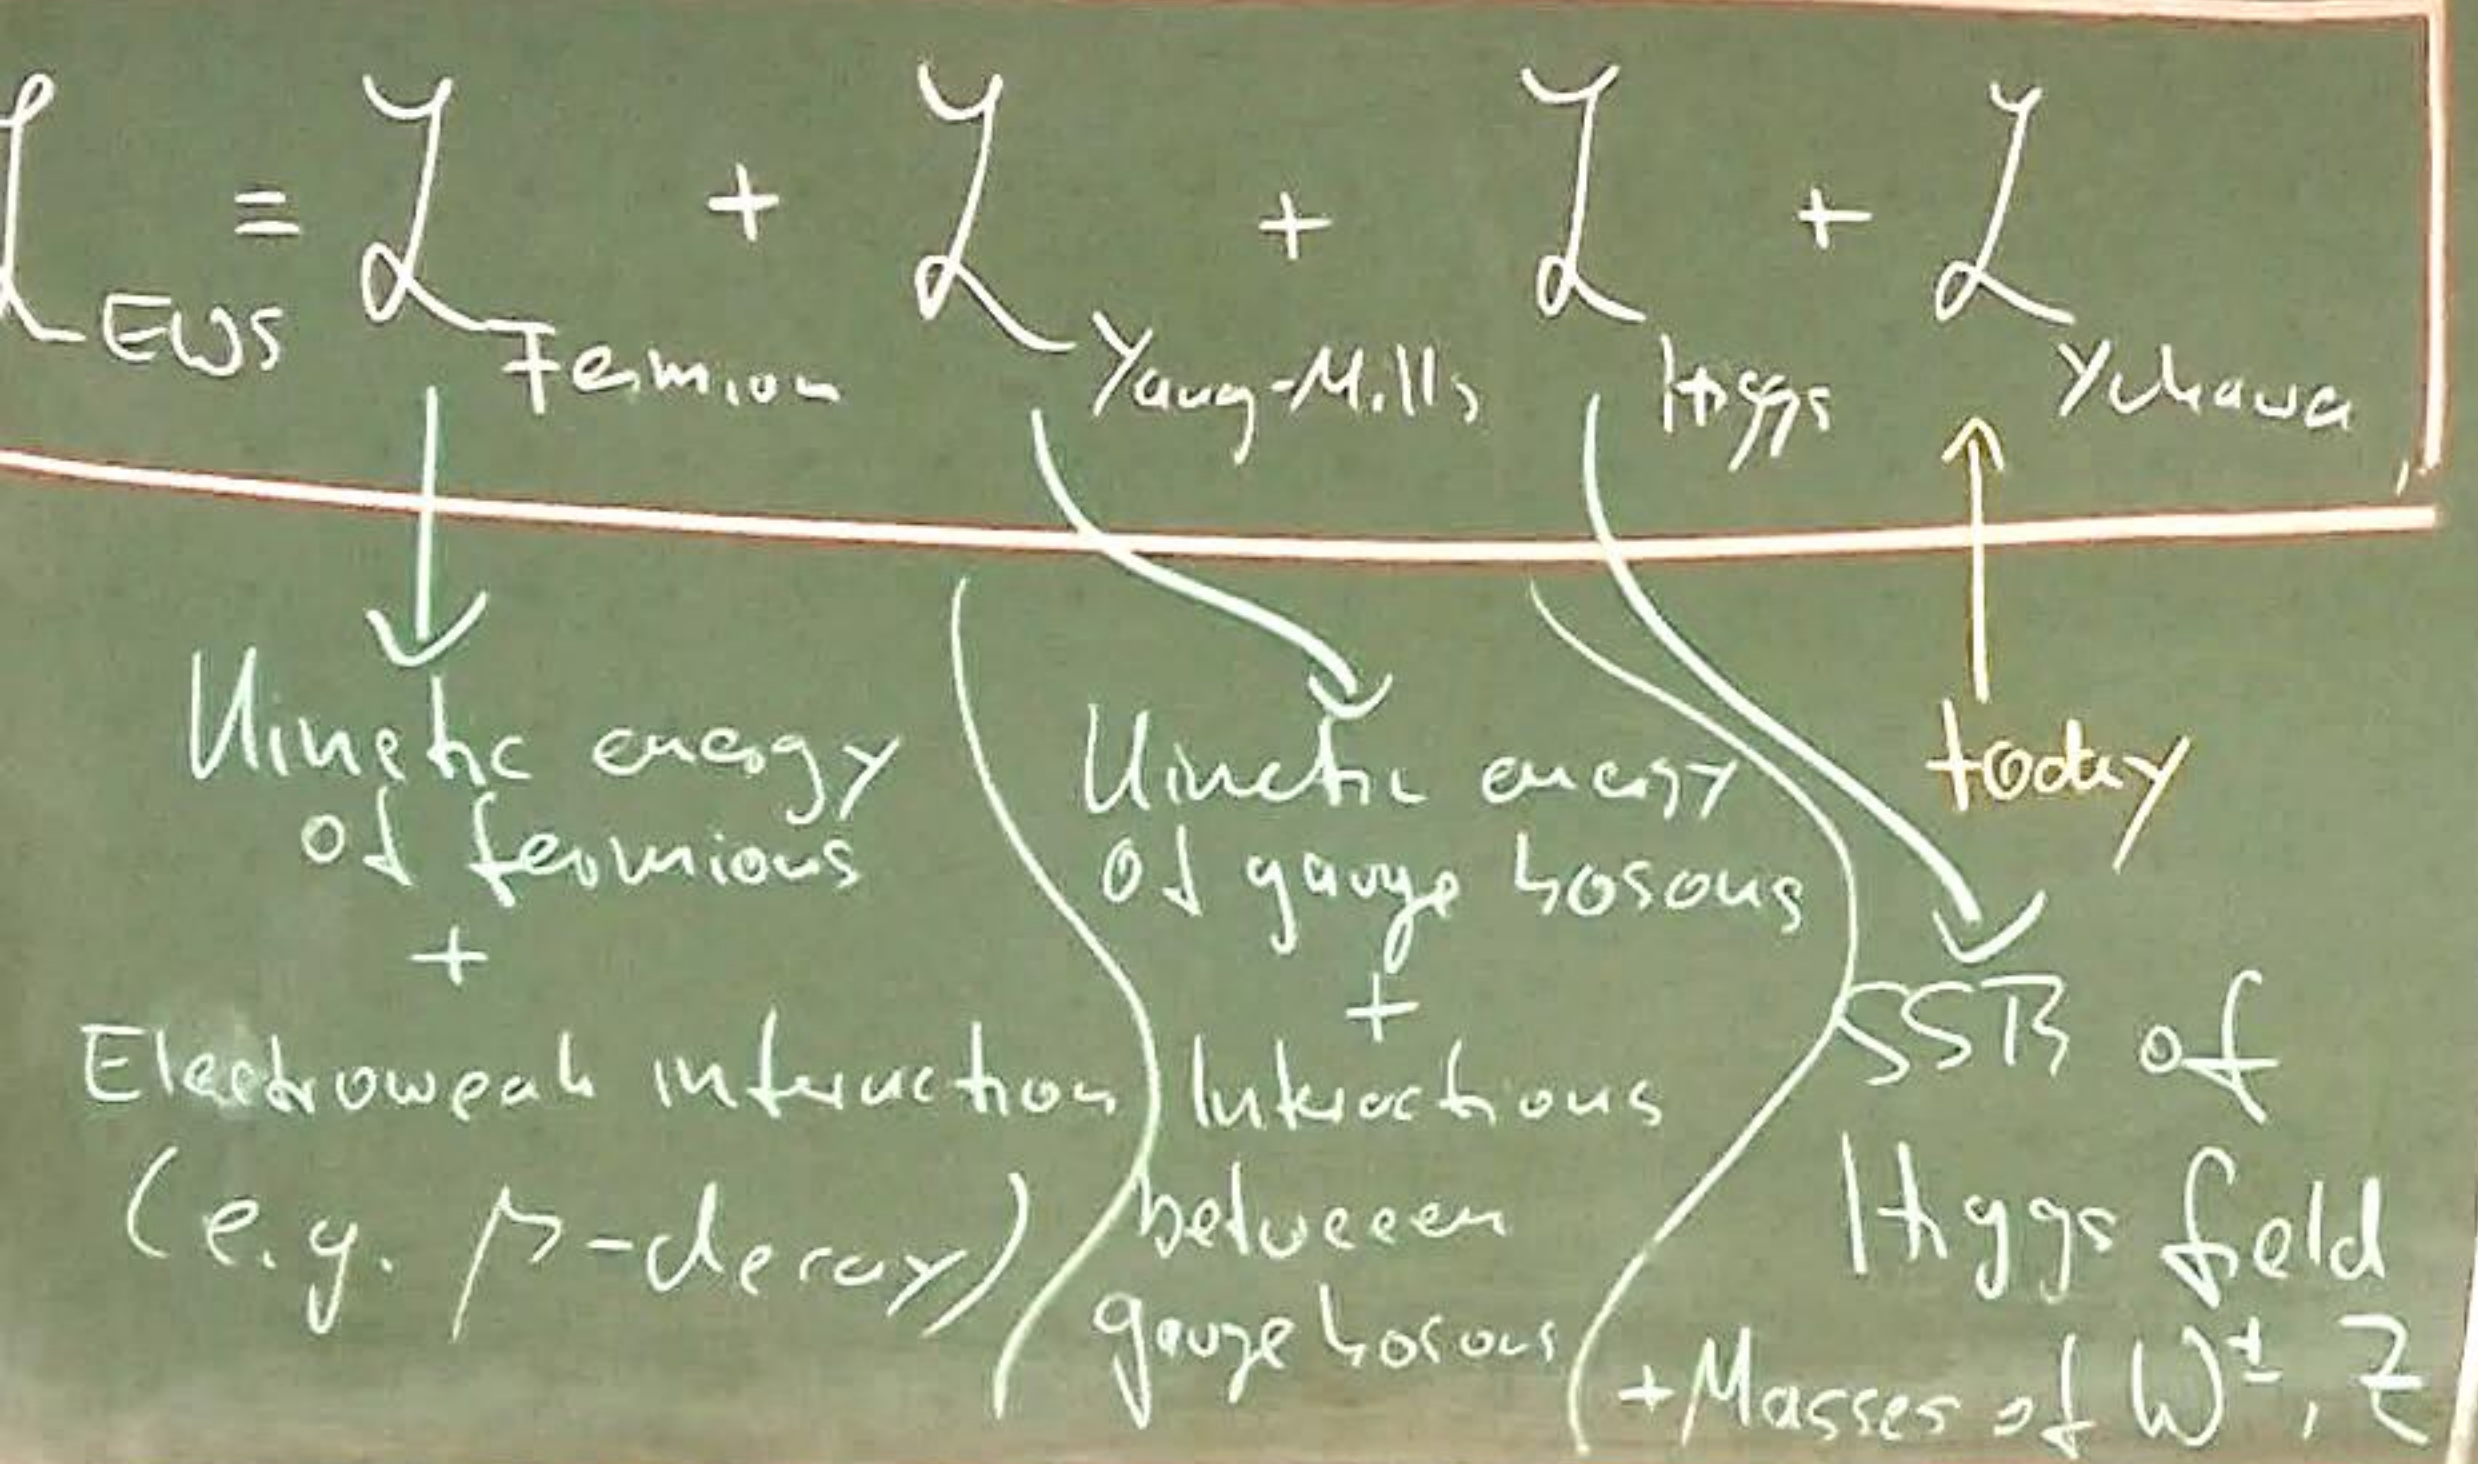 ℒ_EWS = ℒ_Fermion + ℒ_Yang-Mills + ℒ_Higgs + ℒ_Yukawa
Kinetic energy
of fermions
+
Electroweak interaction
(e.g. β-decay)
Kinetic energy
of gauge bosons
+
Interactions
betweeen
gauge bosons
today
SSB of
Higgs field
+Masses of W±, Z